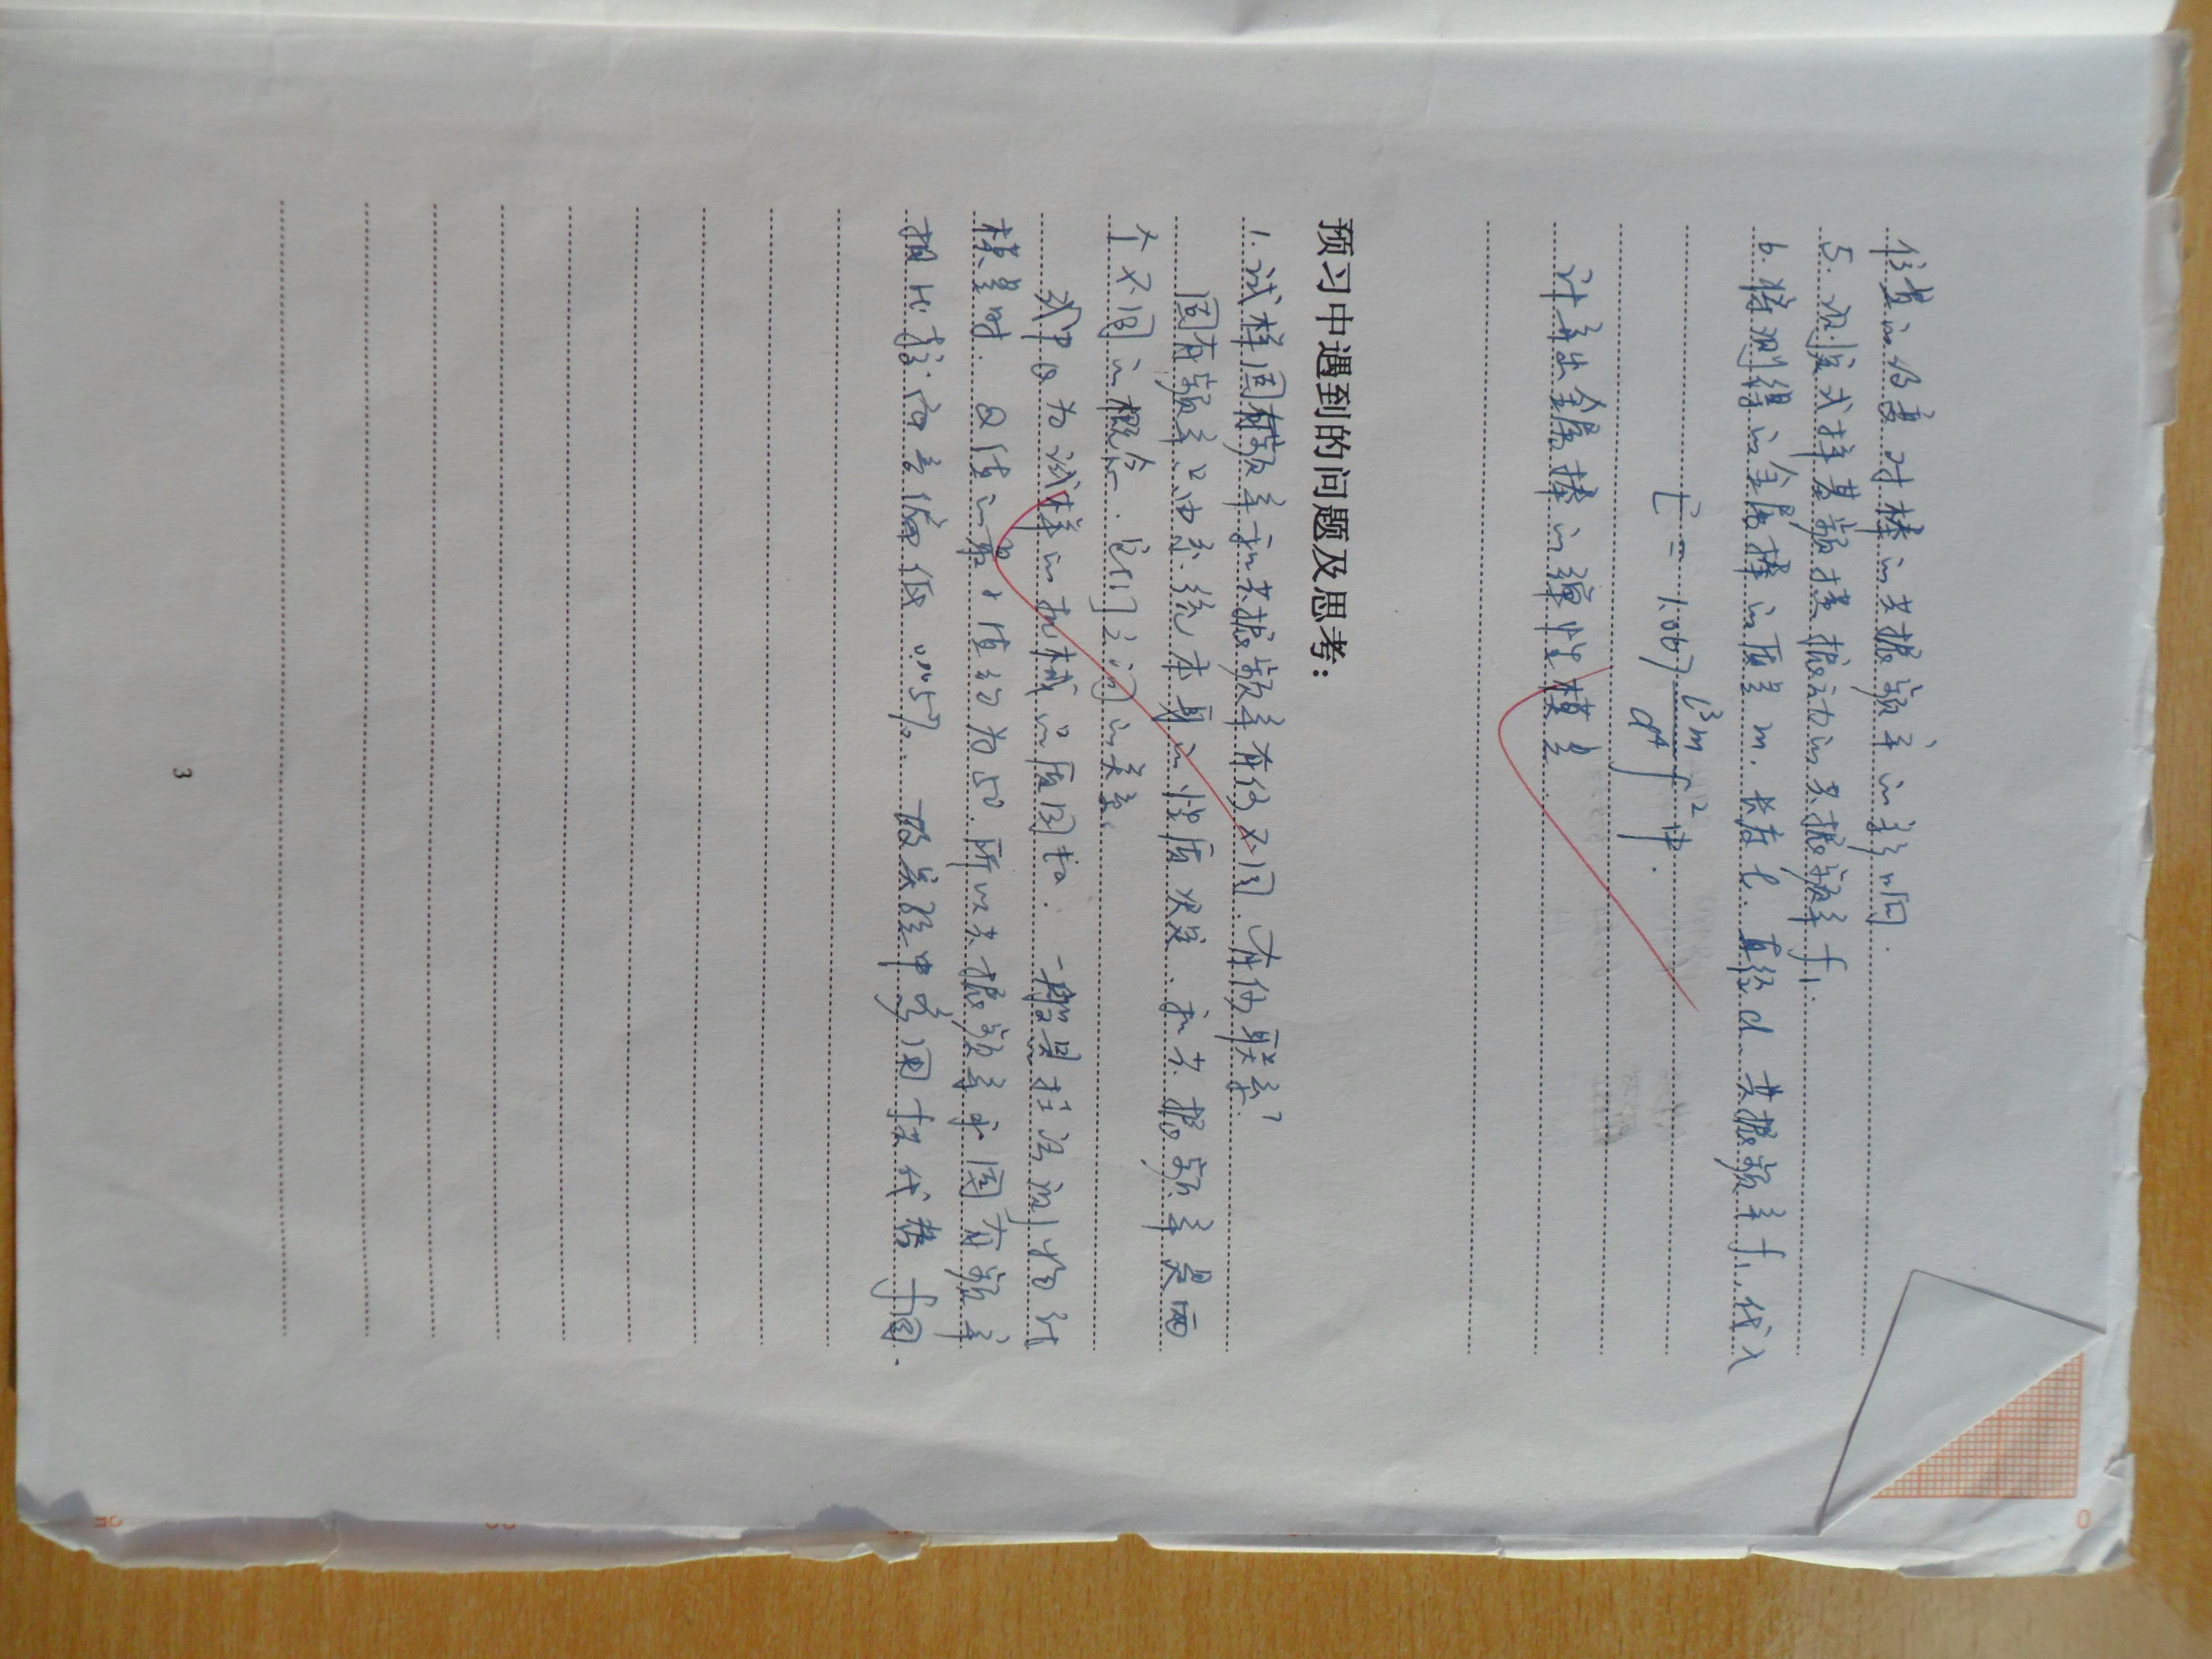 位置的改变对棒的共振频率的影响.
5. 测定试样基频横振动的共振频率f₁.
6. 将测得的金属棒的质量m. 长度l. 直径d. 共振频率f₁, 代入
E = 1.067 l³m/d⁴ f² 中.
计算出金属棒的弹性模量.
预习中遇到的问题及思考：
1. 试样固有频率和共振频率有何不同. 有何联系?
固有频率只由系统本身的性质决定、和共振频率是两
个不同的概念. 它们之间的关系。
式中Q为试样的机械品质因数. 一般悬挂法测杨氏
模量时. Q值的最小值约为50. 所以共振频率和固有频率
相比较而言偏低0.005%. 故实验中常用f共代替f固.
3
0